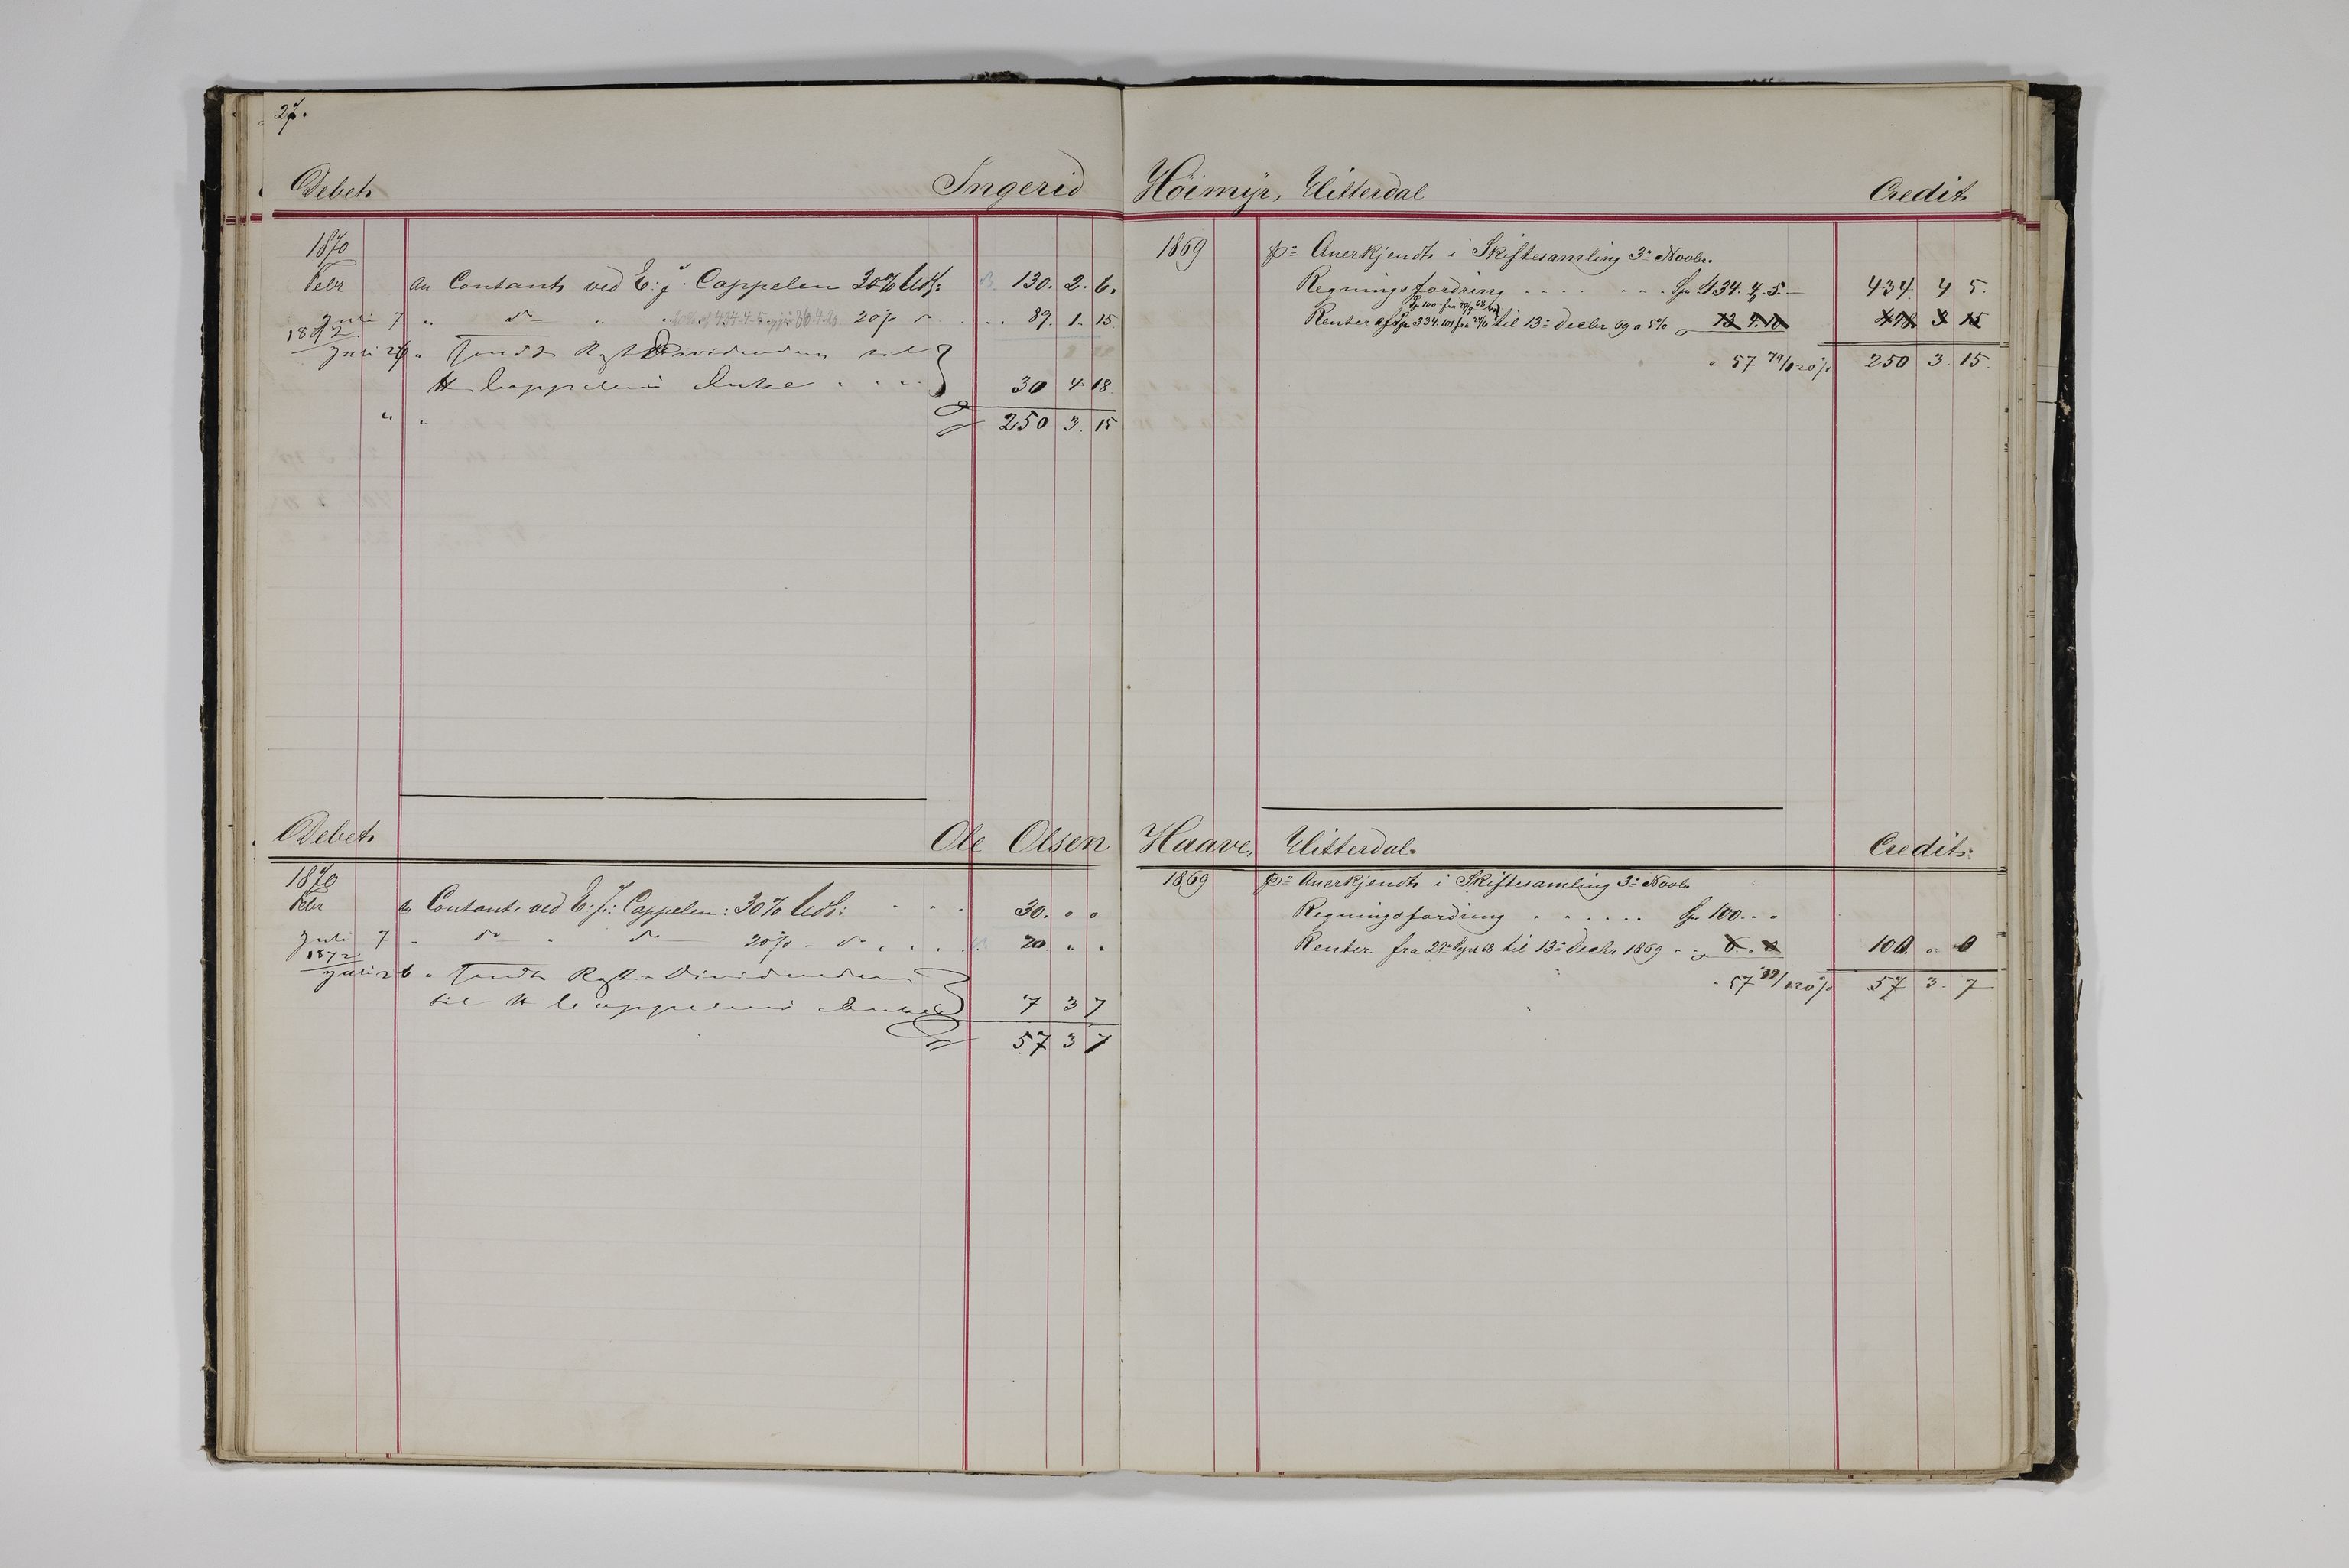 27.
Debet Ingerid Höimyr, Hitterdal Credit
1870
Febr An Contant ved E: J: Cappelen 30% Udb: 130. 2. 6.
Juli 7 " do " 20% do 89. 1. 15.
1872
Juli 26 " Sendt Rest Dividenden til
H Cappelens Enke . . . . 30 4 18
" " 250 3. 15
1869 pr Anerkjendt i Skiftesamling 3. Novbr.
Regningsfordring . . . . . . . Sp 434. 4. 5. 434. 4 5.
Renter af Sp 334. 101 fra til 13. Decbr 69 a 5%
" 57 79/120 % 250 3. 15.
Debet Ole Olsen Haave, Hitterdal. Credit:
1870
Febr An Contant ved E: J: Cappelen: 30% Udb: . . . 30. " "
Juli 7 " do " do 20% " do . . . . 20. " "
1872
Juli 26 " Sendt Rest Dividenden
til H Cappelens Enke 7 3 7
57 3 7
1869 pr Anerkjendt i Skiftesamling 3. Novbr
Regningsfordring . . . . . . Sp 100. " "
Renter fra 29. til 13. Decbr 1869 100. " 0
" 57 79/120 % 57 3. 7